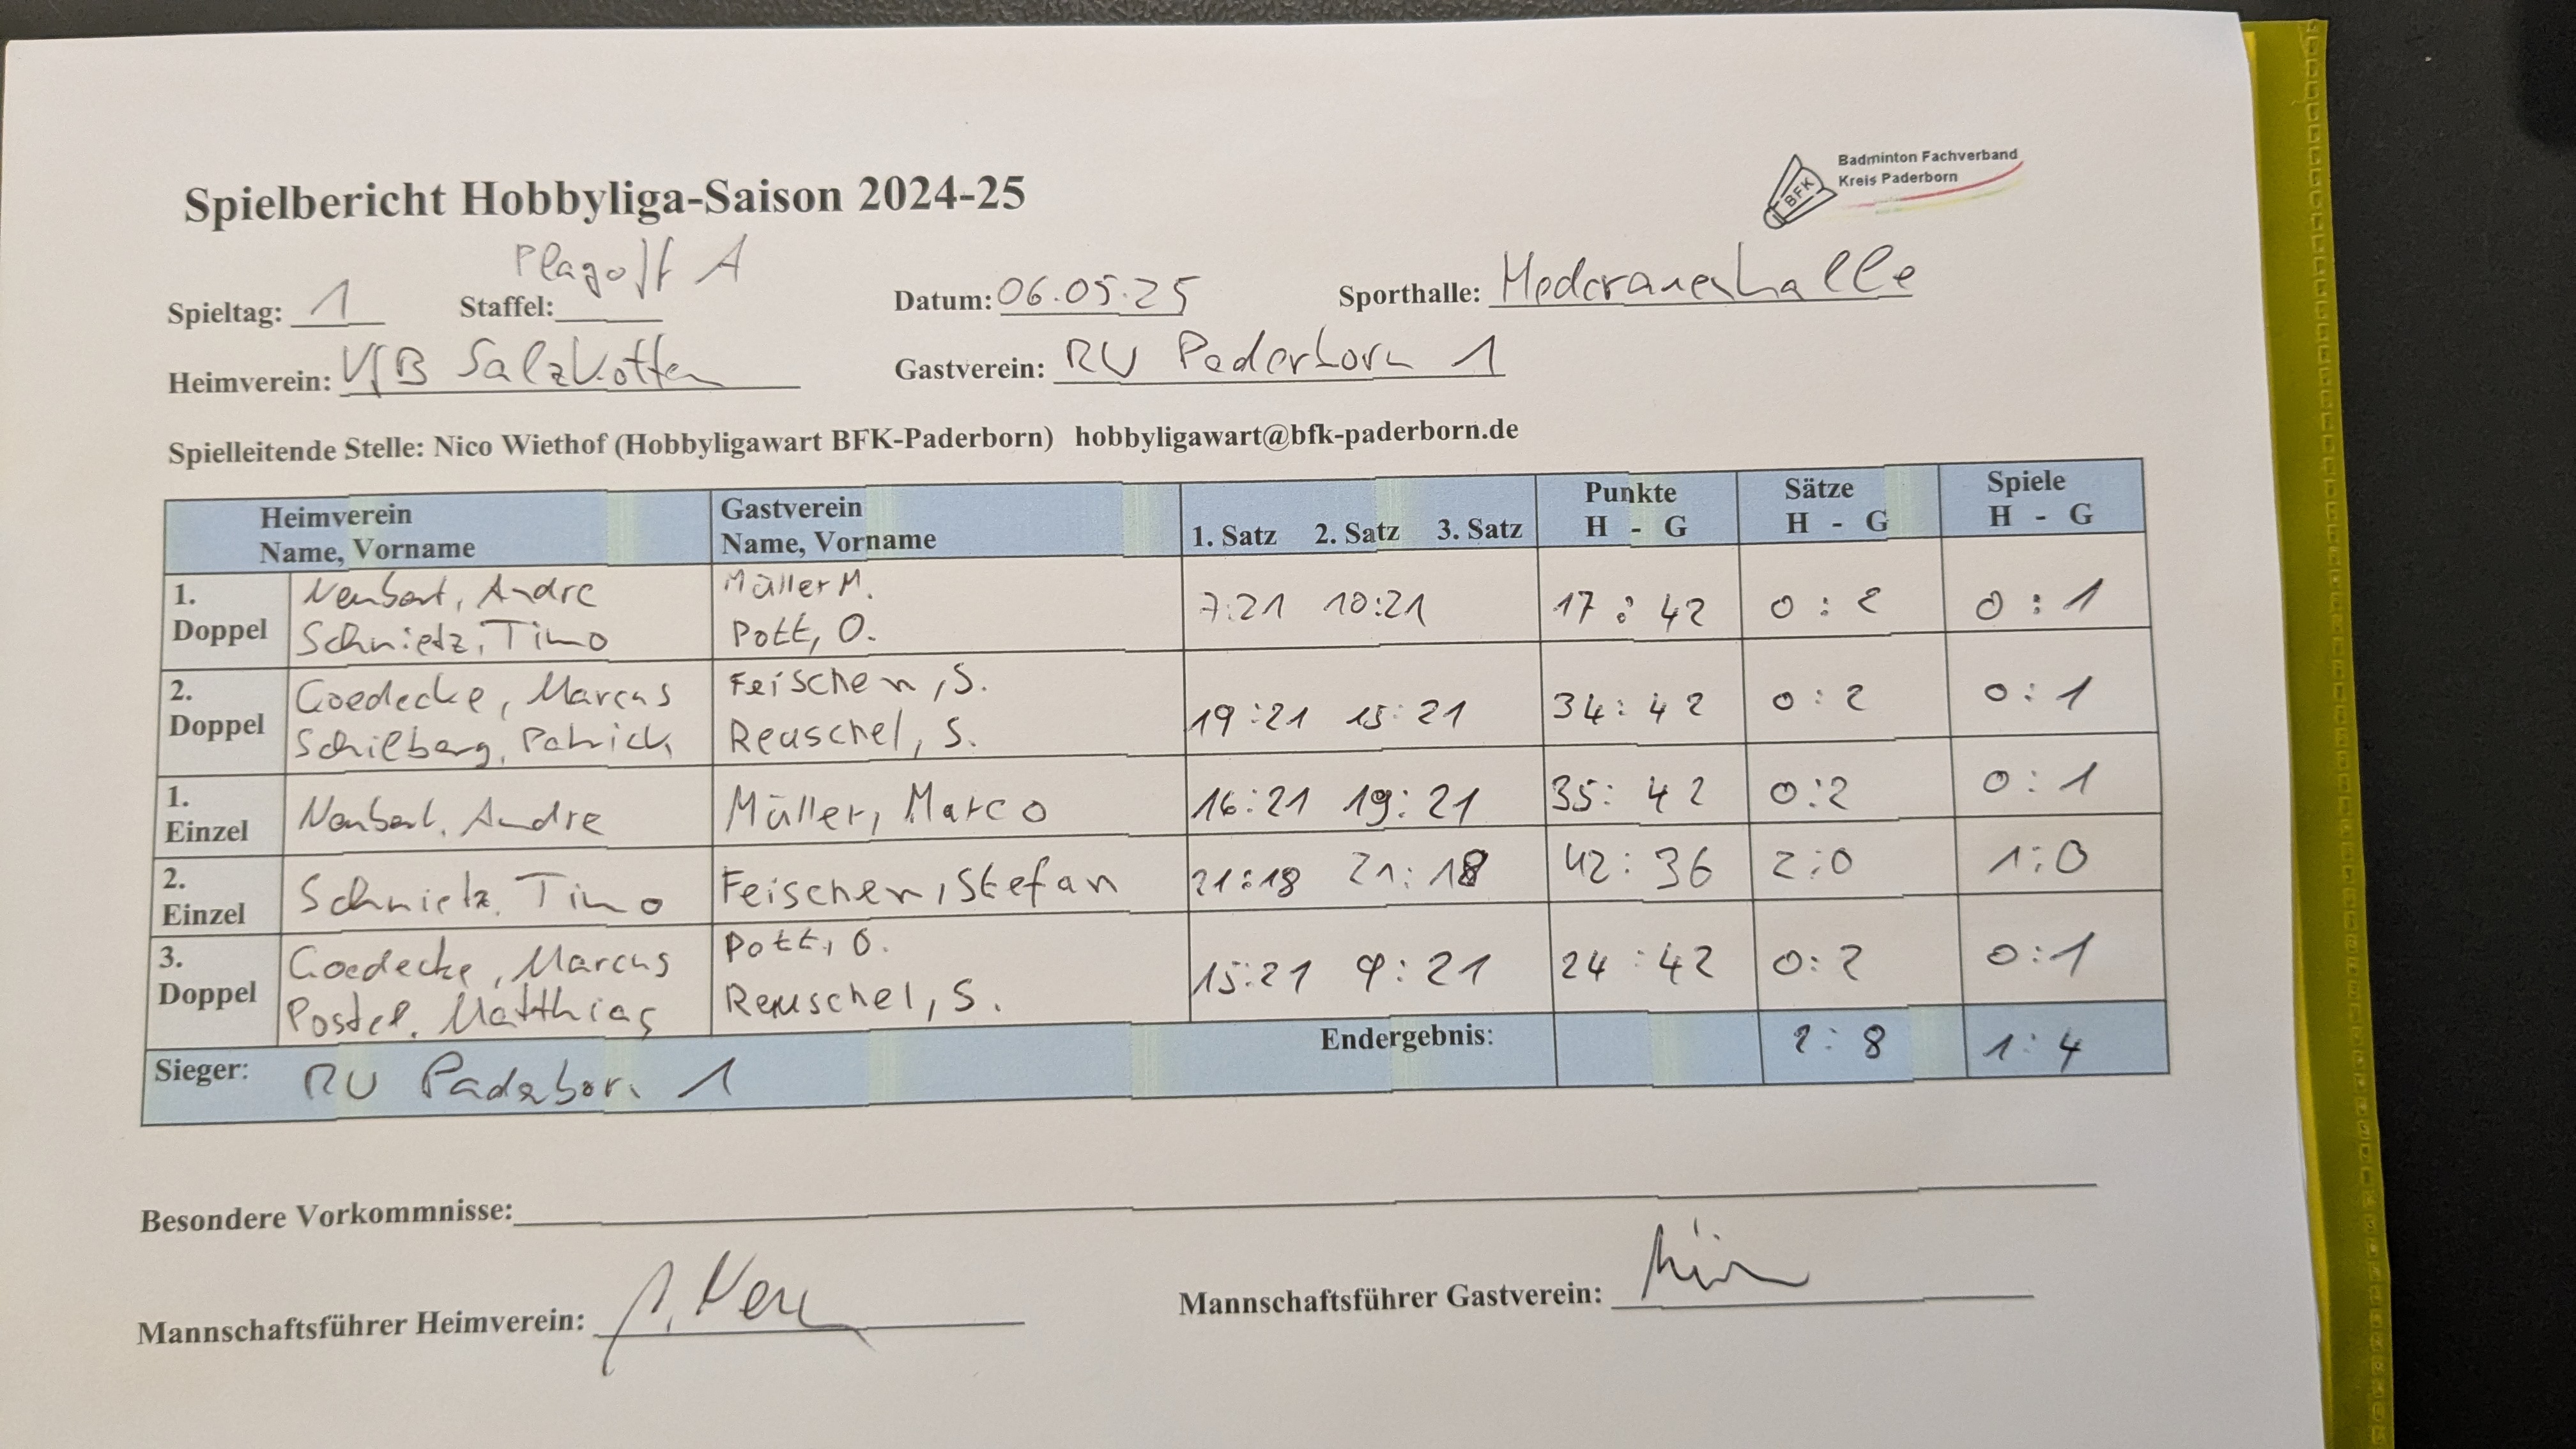 Badminton Fachverband
Kreis Paderborn
BFK
Spielbericht Hobbyliga-Saison 2024-25
Playoff A
Spieltag: 1 Staffel: Datum: 06.05.25 Sporthalle:
Heimverein: VfB Salzkotten Gastverein: RV Paderborn 1
Spielleitende Stelle: Nico Wiethof (Hobbyligawart BFK-Paderborn) hobbyligawart@bfk-paderborn.de
Heimverein Gastverein Punkte Sätze Spiele
Name, Vorname Name, Vorname 1. Satz 2. Satz 3. Satz H - G H - G H - G
1. Neubert, Andre Müller M.
Doppel Schmietz, Timo Pott, O. 7:21 10:21 17:42 0:2 0:1
2. Goedecke, Marcus Feischen, S.
Doppel Schilberg, Patrick Reuschel, S. 19:21 15:21 34:42 0:2 0:1
1.
Einzel Neubert, Andre Müller, Marco 16:21 19:21 35:42 0:2 0:1
2.
Einzel Schmietz, Timo Feischen, Stefan 21:18 21:18 42:36 2:0 1:0
3. Goedecke, Marcus Pott, O.
Doppel Postel, Matthias Reuschel, S. 15:21 9:21 24:42 0:2 0:1
Sieger: RV Paderborn 1 Endergebnis: 2:8 1:4
Besondere Vorkommnisse:
Mannschaftsführer Heimverein: Mannschaftsführer Gastverein: